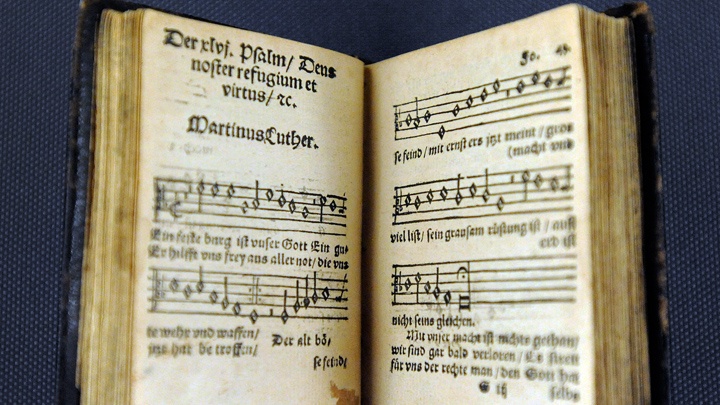 Der xlvj. Psalm/ Deus
noster refugium et
virtus/ ꝛc.
Martinus Luther.
Ein feste burg ist vnser Gott Ein gu⸗
Er hilfft vns frey aus aller not/ die vns
te wehr vnd waffen/
itzt hat be troffen/
Der alt bö⸗
se feind/
se feind/ mit ernst ers jtzt meint/ gros
(macht vnd
viel list/ sein grausam rüstung ist/ auff
erd ist
nicht seins gleichen.
Mit vnser macht ist nichts gethan/
wir sind gar bald verloren/ Es streit
für vns der rechte man/ den Gott hat
selbs